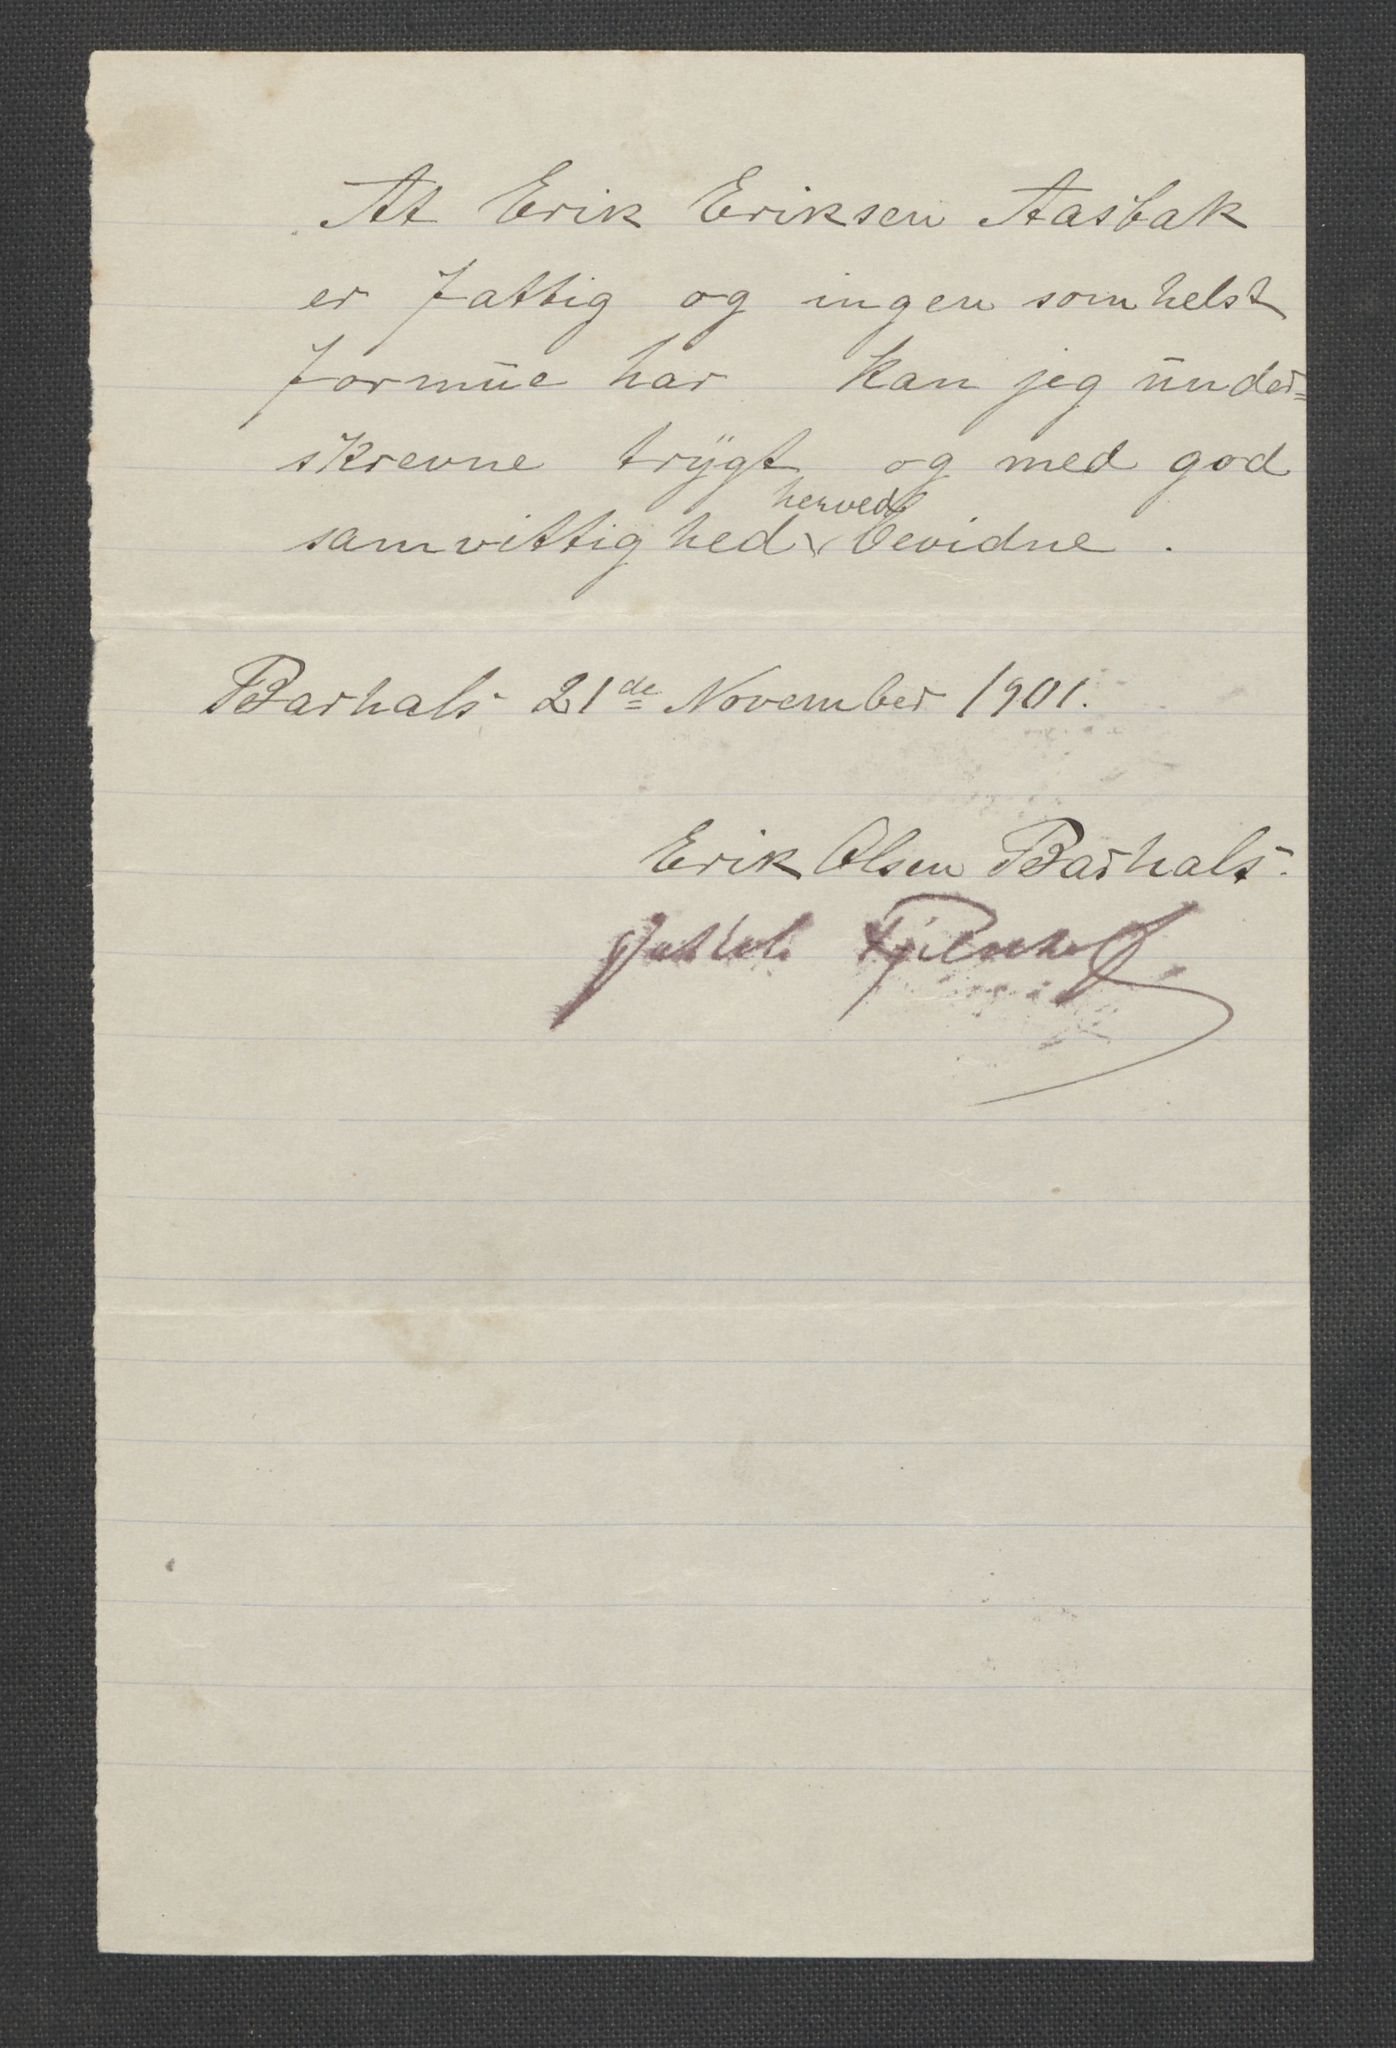 At Erik Eriksen Aasbak
er fattig og ingen somhelst
formūe har kan jeg ūnder=
skrevne trÿgt og med god
herved
samvittighed bevidne.
Barhals 21de November 1901.
Erik Olsen Barhals.